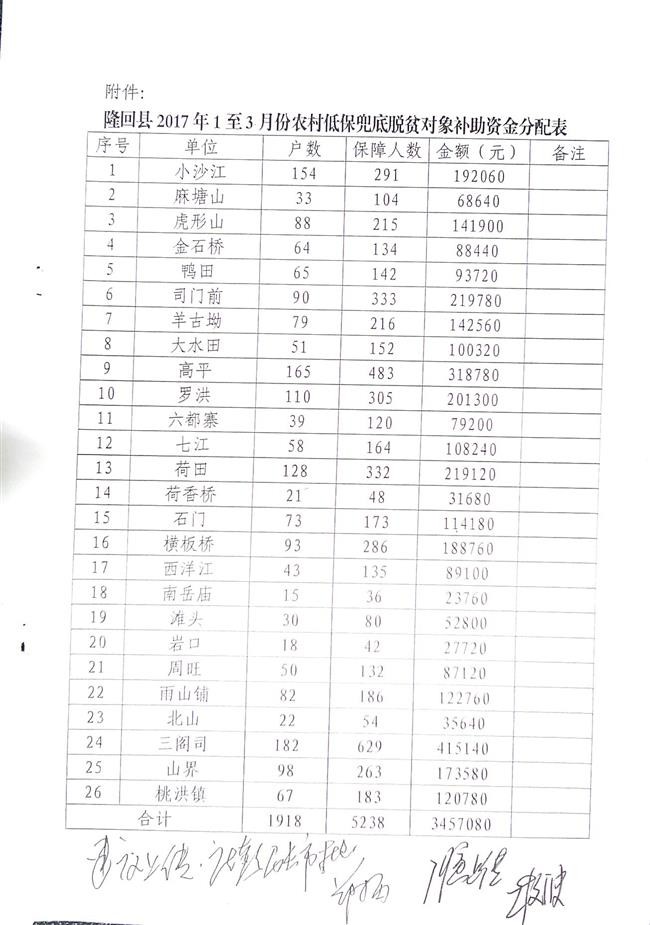 附件:
隆回县2017年1至3月份农村低保兜底脱贫对象补助资金分配表
序号 单位 户数 保障人数 金额（元） 备注
1 小沙江 154 291 192060
2 麻塘山 33 104 68640
3 虎形山 88 215 141900
4 金石桥 64 134 88440
5 鸭田 65 142 93720
6 司门前 90 333 219780
7 羊古坳 79 216 142560
8 大水田 51 152 100320
9 高平 165 483 318780
10 罗洪 110 305 201300
11 六都寨 39 120 79200
12 七江 58 164 108240
13 荷田 128 332 219120
14 荷香桥 21 48 31680
15 石门 73 173 114180
16 横板桥 93 286 188760
17 西洋江 43 135 89100
18 南岳庙 15 36 23760
19 滩头 30 80 52800
20 岩口 18 42 27720
21 周旺 50 132 87120
22 雨山铺 82 186 122760
23 北山 22 54 35640
24 三阁司 182 629 415140
25 山界 98 263 173580
26 桃洪镇 67 183 120780
合计 1918 5238 3457080